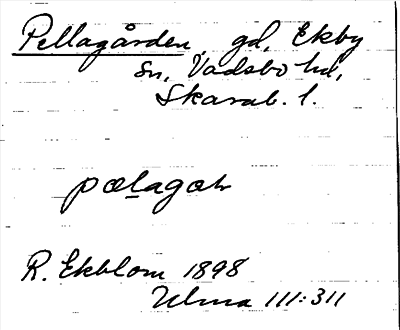 Pellagården, gd, Ekby
Sn, Vadsbo hd,
Skarab. l.
pælagaɳ
R. Ekblom 1898
Ulma 111:311